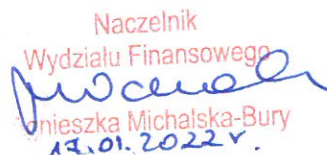 Naczelnik
Wydziału Finansowego
Agnieszka Michalska-Bury
17.01.2022 r.